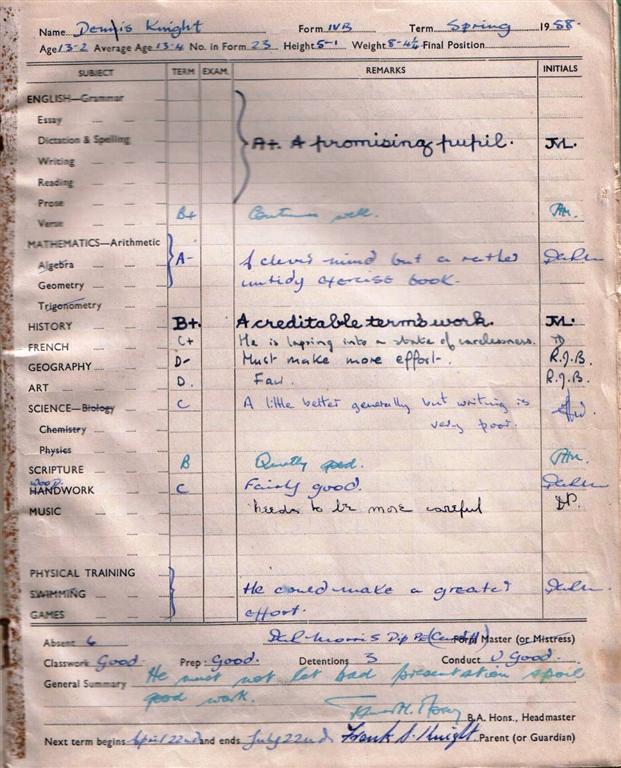 Name Dennis Knight Form IVB Term Spring 1958.
Age 13-2 Average Age 13-4 No. in Form 23 Height 5-1 Weight 8-4½ Final Position
SUBJECT TERM EXAM. REMARKS INITIALS
ENGLISH—Grammar
Essay
Dictation & Spelling A+. A promising pupil. J.V.L.
Writing
Reading
Prose
Verse B+ Continues well.
MATHEMATICS—Arithmetic
Algebra A- A clever mind but a rather
Geometry untidy exercise book.
Trigonometry
HISTORY B+. A creditable term's work. J.V.L.
FRENCH C+ He is lapsing into a state of carelessness.
GEOGRAPHY D- Must make more effort. R.J.B.
ART D. Fair. R.J.B.
SCIENCE—Biology C A little better generally but writing is
Chemistry very poor.
Physics
SCRIPTURE B Quite good.
WOOD
HANDWORK C Fairly good.
MUSIC Needs to be more careful DP.
PHYSICAL TRAINING
SWIMMING He could make a greater
GAMES effort.
Absent 6 Morris Dip PE (Cardiff) Form Master (or Mistress)
Classwork Good. Prep Good. Detentions 3 Conduct V Good.
General Summary He must not let bad presentation spoil
good work.
B.A. Hons., Headmaster
Next term begins April 22nd and ends July 22nd. Frank S. Knight Parent (or Guardian)